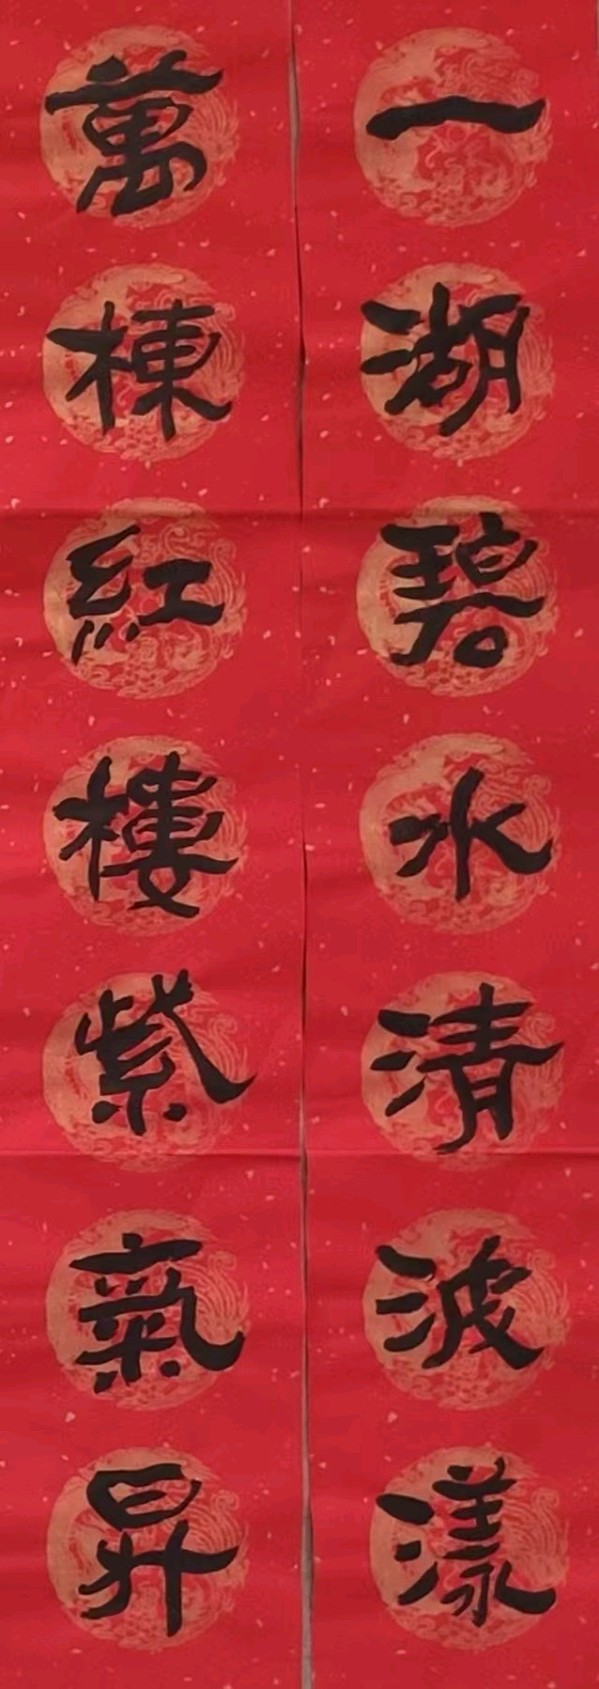 一湖碧水清波漾
萬棟紅樓紫氣昇